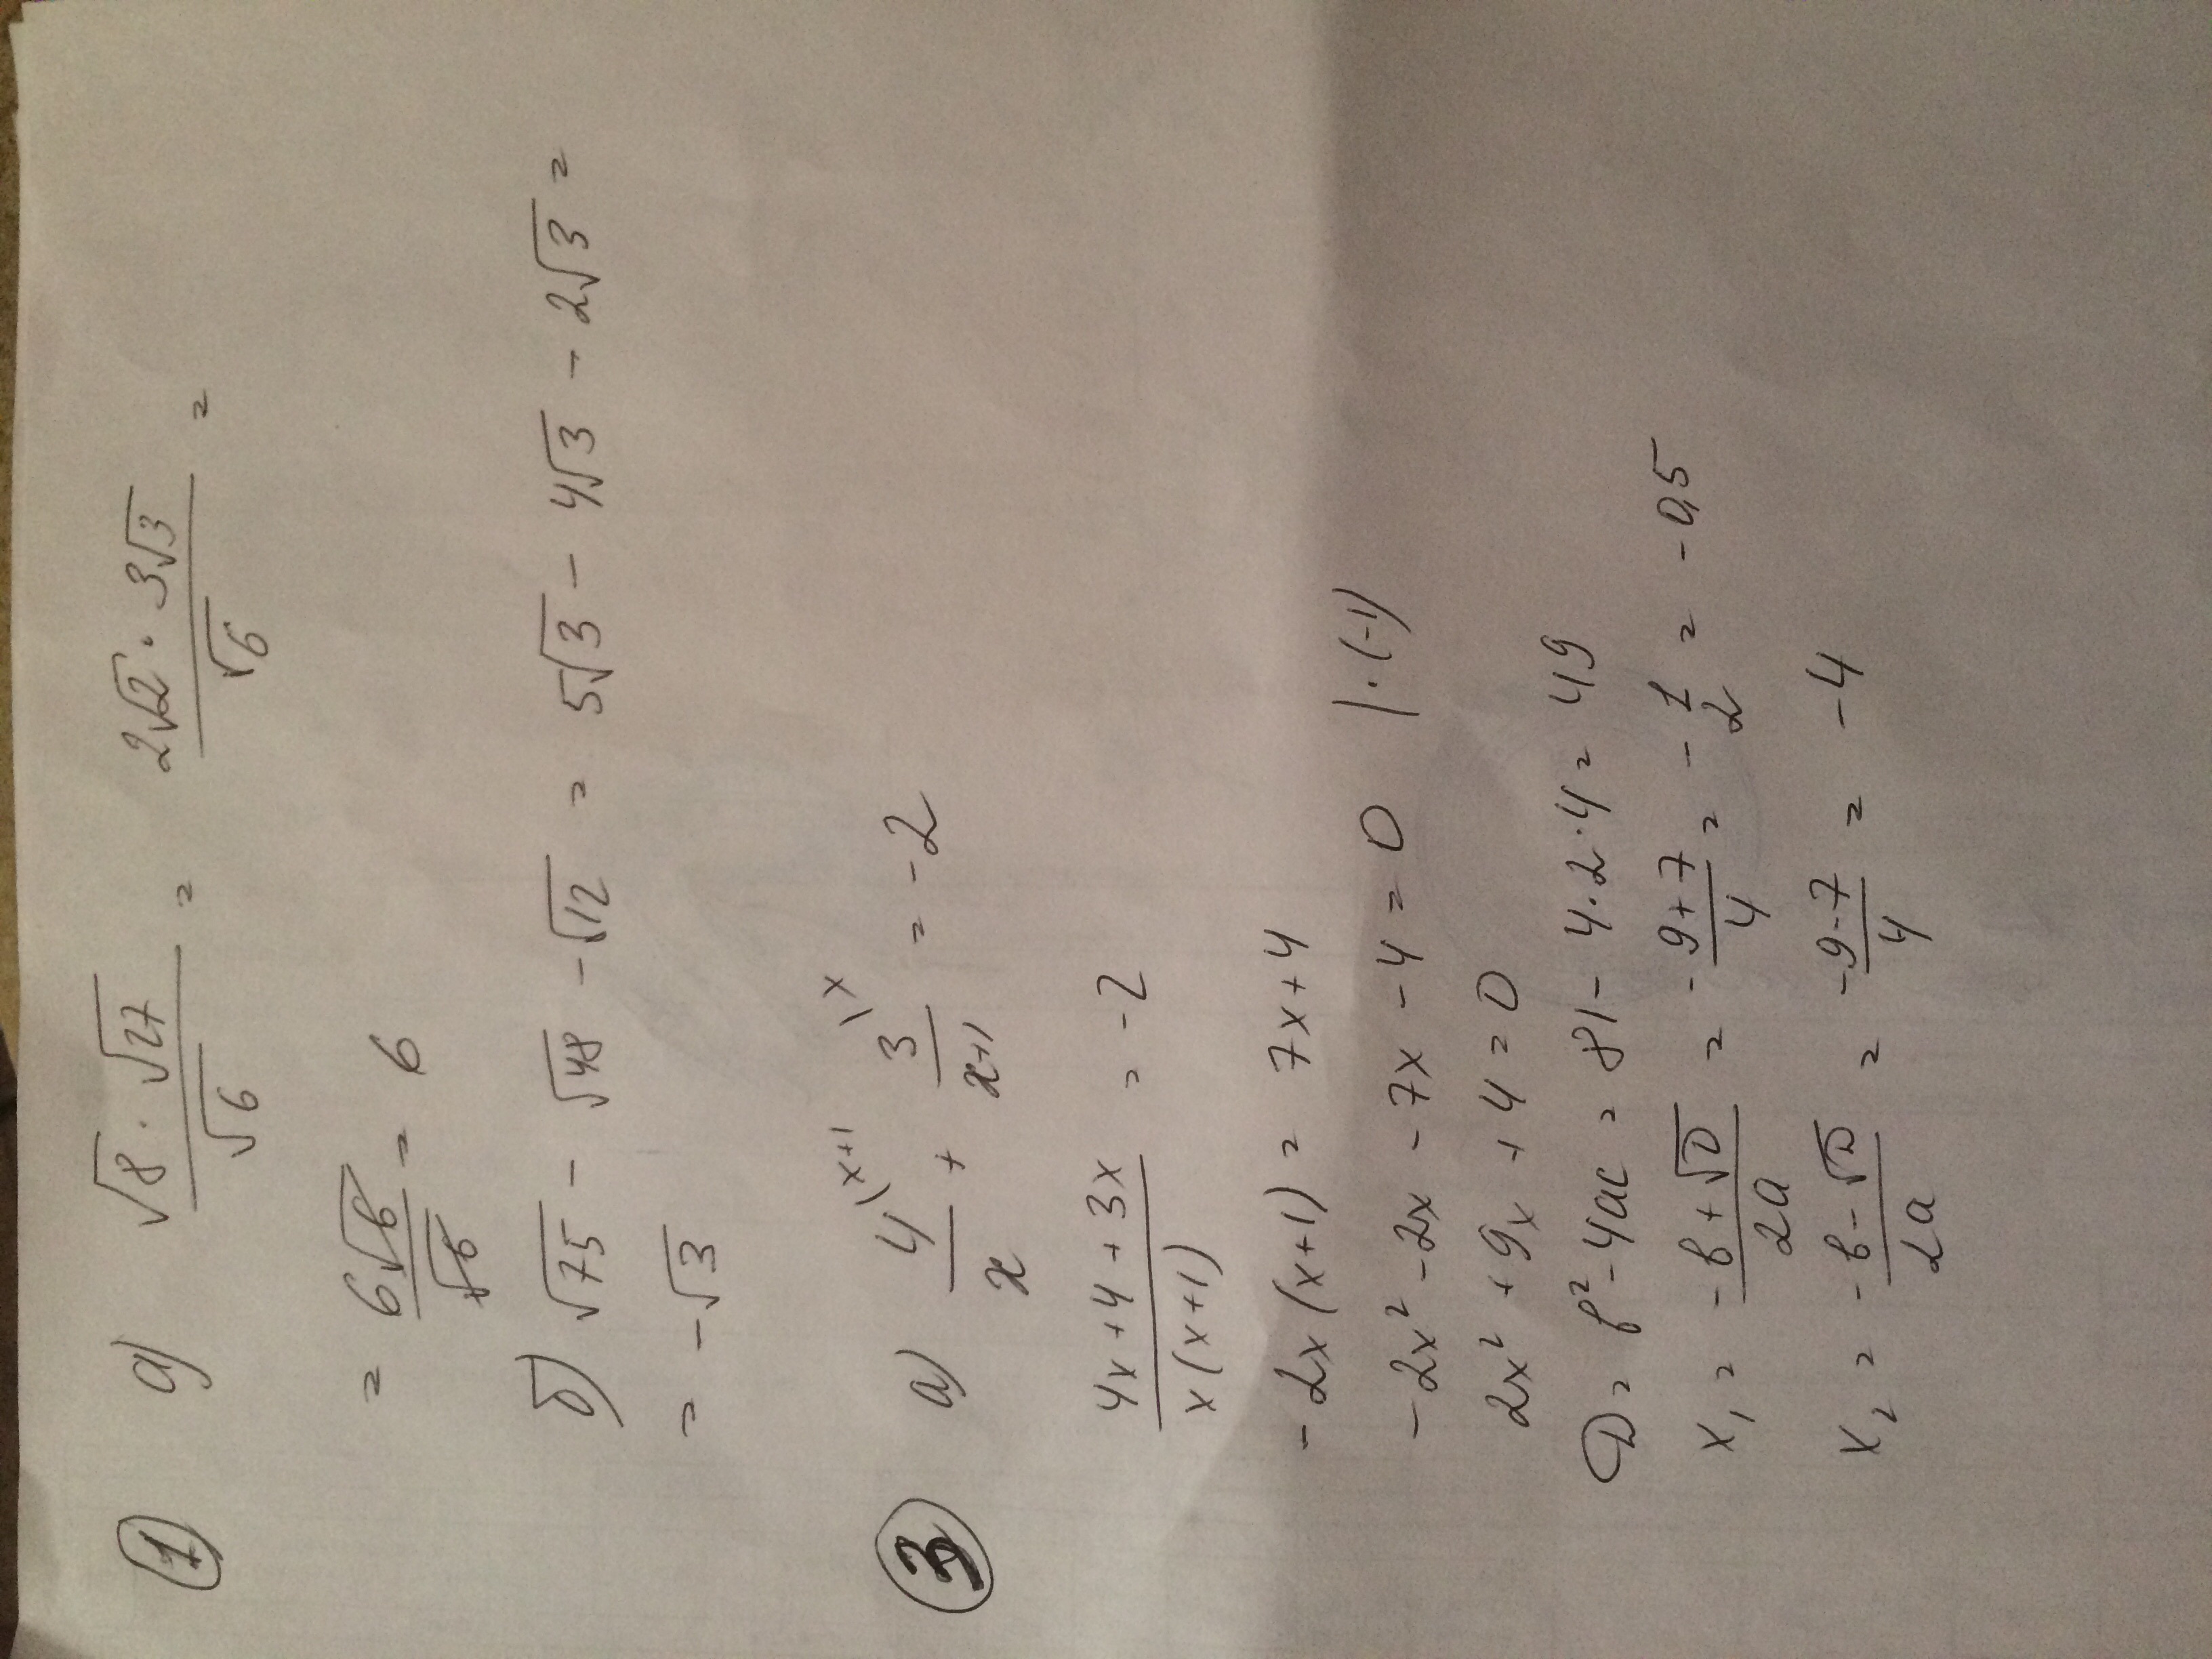 ① а) √8 · √27 / √6 = 2√2 · 3√3 / √6 =
= 6√6 / √6 = 6
б) √75 - √48 - √12 = 5√3 - 4√3 - 2√3 =
= -√3
③ а) 4/x \x+1 + 3/x+1 \x = -2
4x+4+3x / x(x+1) = -2
-2x(x+1) = 7x+4
-2x² -2x -7x -4 = 0 | · (-1)
2x² + 9x + 4 = 0
D = b² - 4ac = 81 - 4·2·4 = 49
x₁ = -b+√D / 2a = -9+7 / 4 = -1/2 = -0,5
x₂ = -b-√D / 2a = -9-7 / 4 = -4